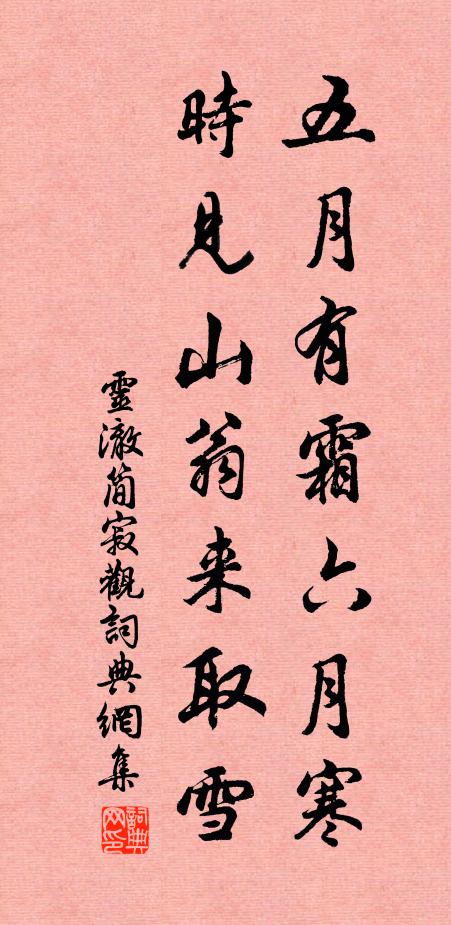 五月有霜六月寒
時見山翁来取雪
靈澈簡寂觀詞典網集
詞典网印